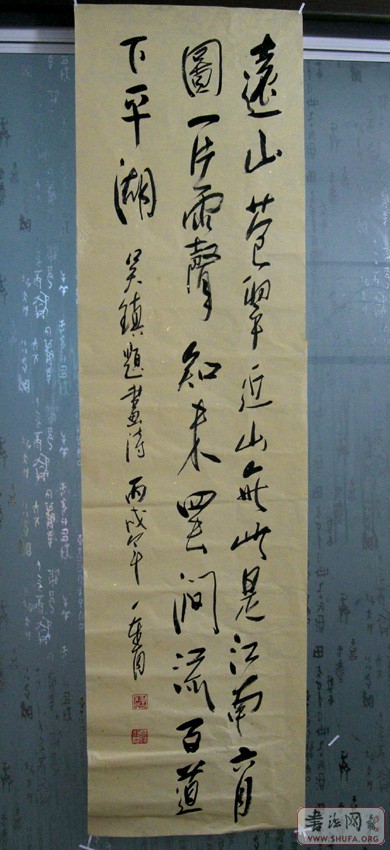 遠山苍翠近山無此是江南六月
圖一片雨聲知未罢澗流百道
下平湖 吴鎮題畫詩 丙戌年
書法网
WWW.SHUFA.ORG